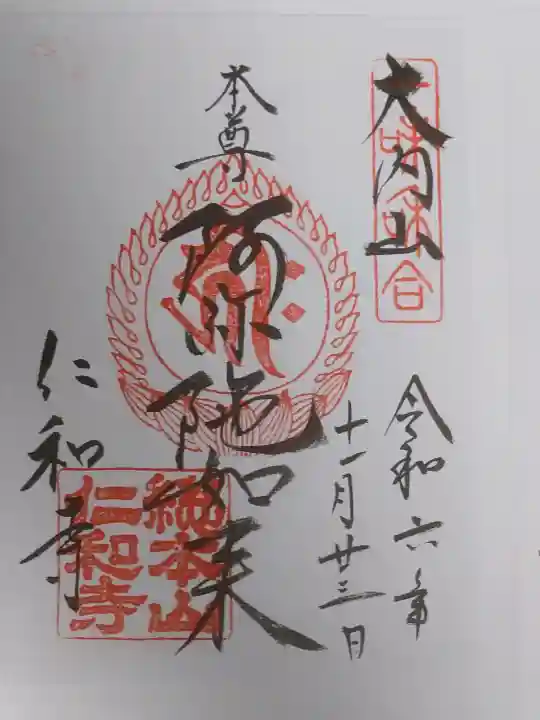 大内山
令和六年
十一月廿三日
本尊
阿弥陀如来
仁和寺
総本山
仁和寺